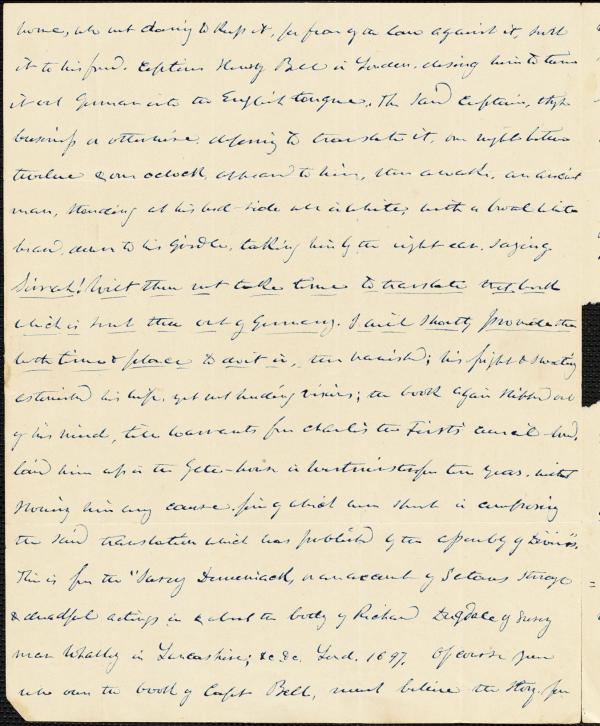 home, who not daring to keep it, for fear of the law against it, sent
it to his friend. Captain Henry Bell in London. desiring him to turn
it out German into the English tongue. The said Captain, thro
business or otherwise deferring to translate it, one night between
twelve & one oclock, appeared to him, then awake, an ancient
man, standing at his bed-side all in white, with a broad white
beard, down to his Girdle, taking him by the right ear. saying
Sirrah! Wilt thou not take time to translate that book
which is sent thee out of Germany. I will shortly provide thee
both time & place to do it in, then vanished; his fright & sweating
astonished his wife. yet not heeding visions; the book again slipped out
of his mind, till warrants from Charles the First's council-board,
laid him up in the Gate-house in Westminster for ten years. without
showing him any cause. five of which were spent in composing
the said translation which was published by the assembly of Divines.
This is from the "Surey Demoniack, or an account of Satans strange
& dreadful actings in & about the body of Richard Dugdale of Surey
near Whalley in Lancashire; &c &c. Lond. 1697. Of course you
who own the book of Capt Bell, must believe the story. for